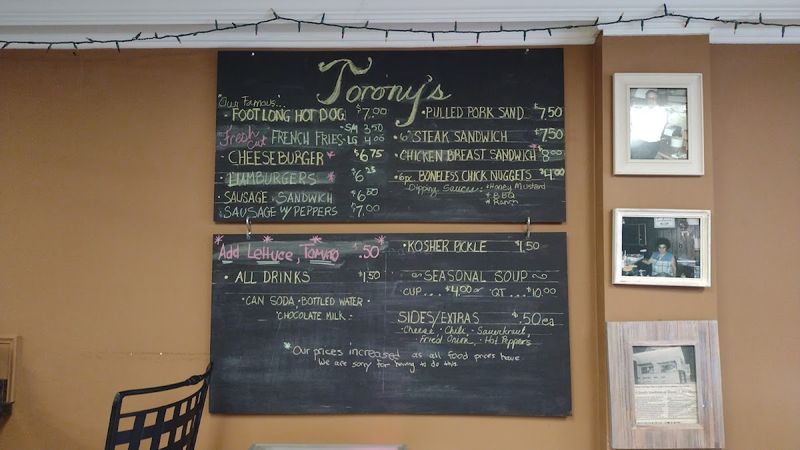 Torony's
"Our Famous"...
• FOOTLONG HOT DOG $7.00
Fresh Cut FRENCH FRIES - SM 3.50
LG 4.00
• CHEESEBURGER * $6.75
• HUMBURGERS * $6.25
• SAUSAGE SANDWICH $6.50
• SAUSAGE W/ PEPPERS $7.00
• PULLED PORK SAND $7.50
• 6oz STEAK SANDWICH $7.50
• CHICKEN BREAST SANDWICH * $8.00
• 6pc BONELESS CHICK NUGGETS $4.00
Dipping Sauces: * Honey Mustard
* BBQ
* Ranch
* Add Lettuce, Tomato .50 *
• ALL DRINKS $1.50
• CAN SODA, • BOTTLED WATER •
• CHOCOLATE MILK •
• KOSHER PICKLE $1.50
~ SEASONAL SOUP ~
CUP .... $4.00 or QT ... $10.00
SIDES/EXTRAS $.50 ea
• Cheese • Chili, • Sauerkraut,
Fried Onion, • Hot Peppers
* Our prices increased as all food prices have
We are sorry for having to do this.